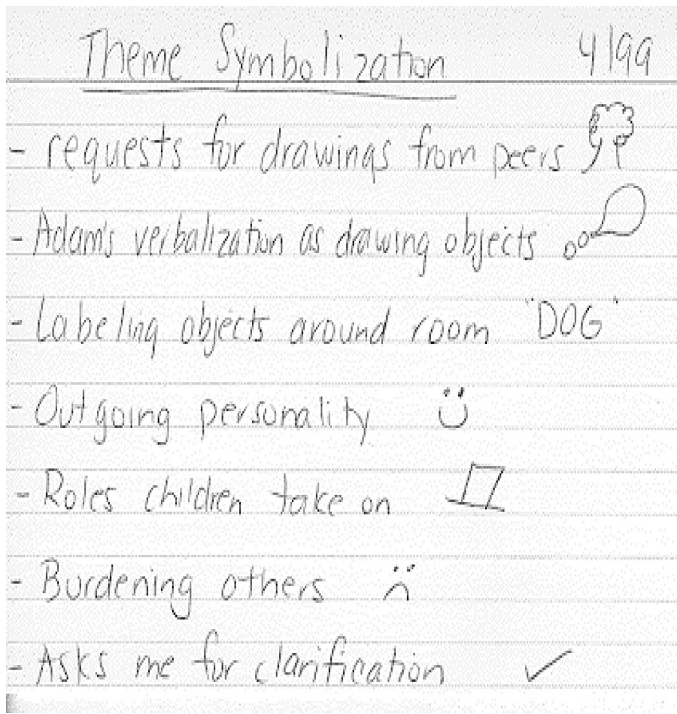 Theme Symbolization 4/99
- requests for drawings from peers
- Adam's verbalization as drawing objects
- Labeling objects around room "DOG"
- Outgoing personality
- Roles children take on
- Burdening others
- Asks me for clarification